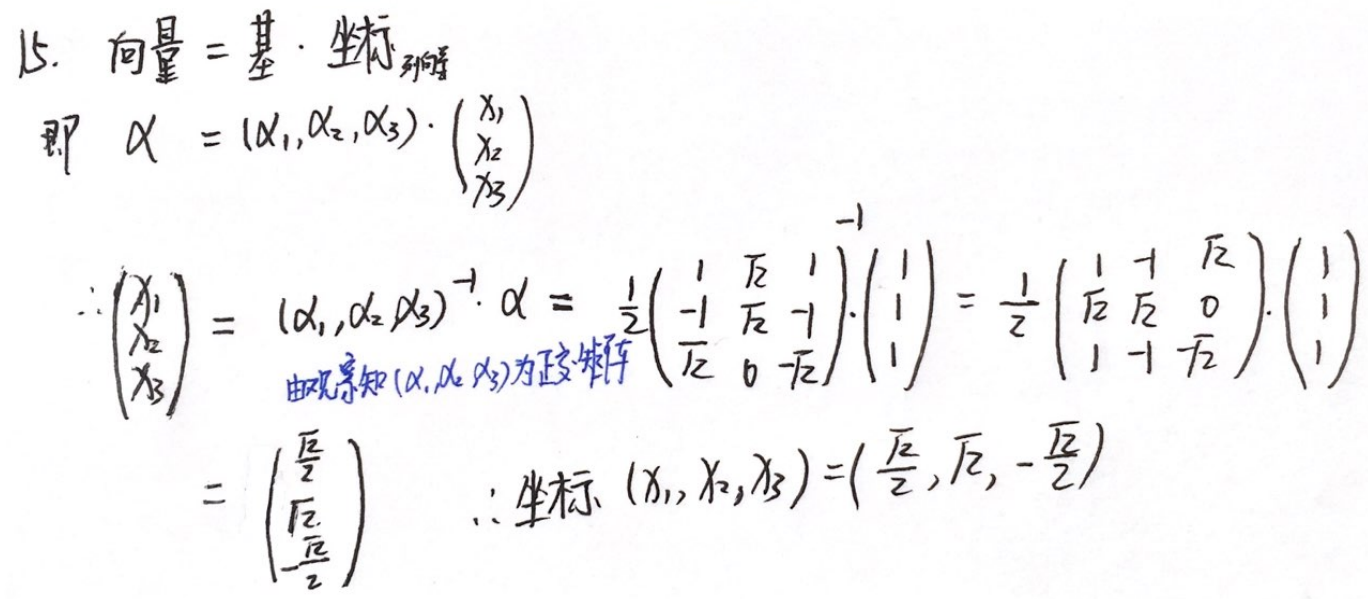 15. 向量 = 基 · 坐标列向量
即 α = (α₁, α₂, α₃) · (x₁ x₂ x₃)
∴ (x₁ x₂ x₃) = (α₁, α₂ α₃)⁻¹ · α = 1/2 (1 √2 1; -1 √2 -1; √2 0 -√2)⁻¹ · (1 1 1) = 1/2 (1 -1 √2; √2 √2 0; 1 -1 -√2) · (1 1 1)
由观察知 (α₁ α₂ α₃) 为正交矩阵
= (√2/2 √2 -√2/2) ∴ 坐标 (x₁, x₂, x₃) = (√2/2, √2, -√2/2)